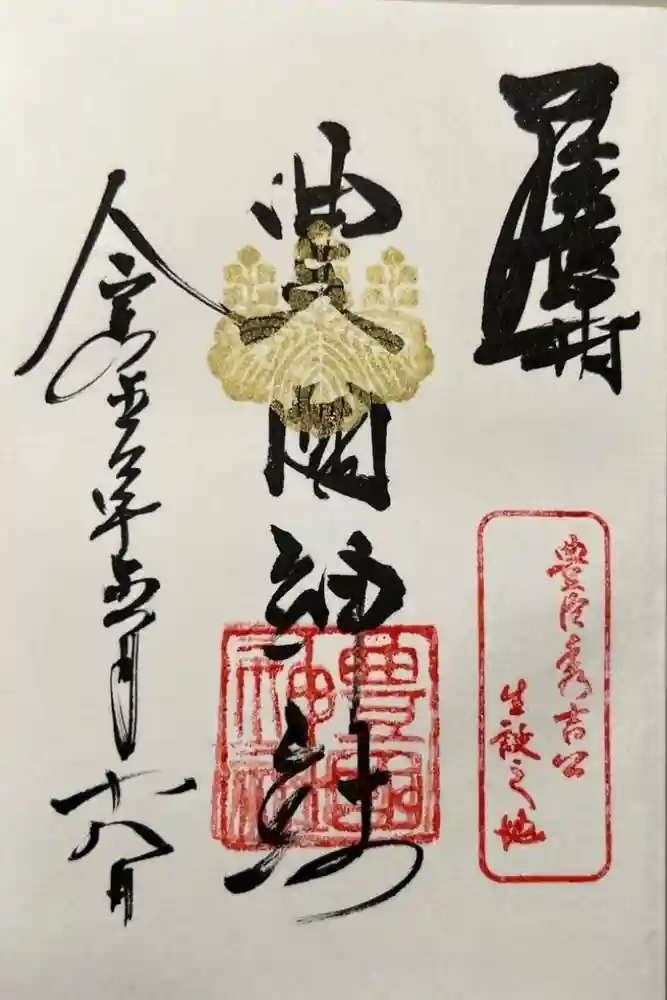 尾張中村
豊臣秀吉公
生誕之地
豊國神社
豊國
神社
令和五年五月十八日